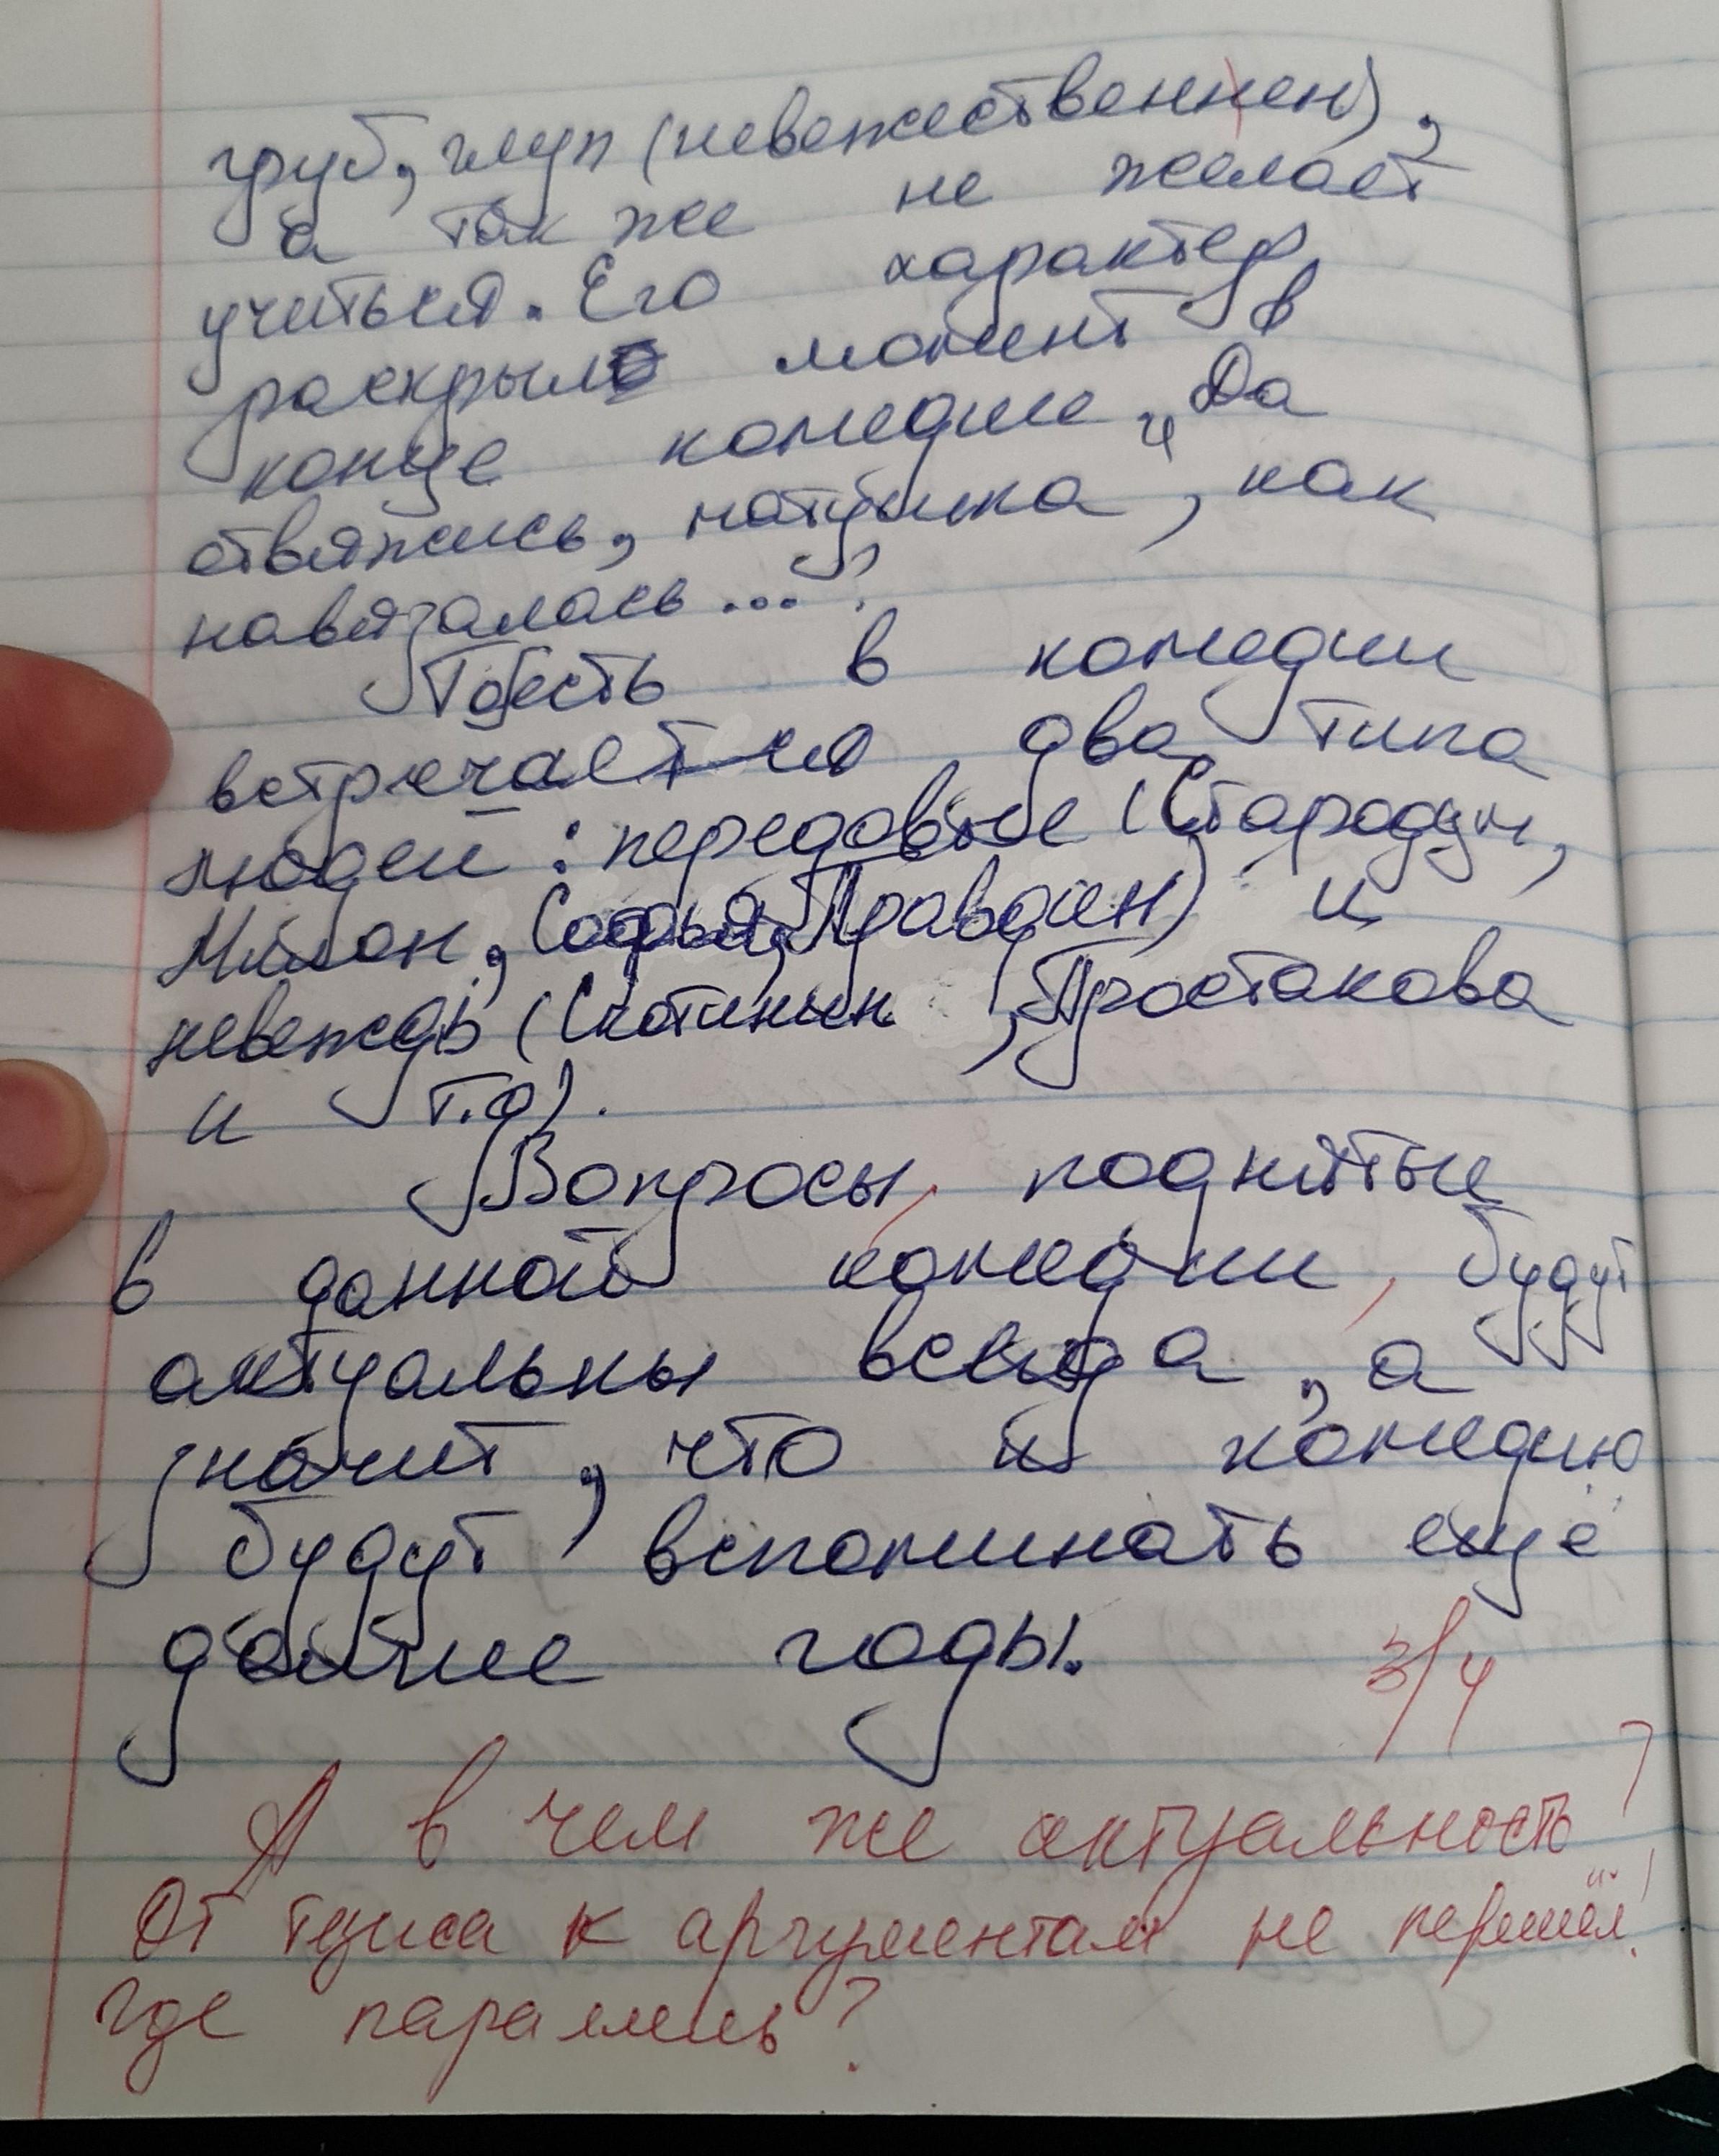 груб, глуп (невежественнен),
а так же не желает
учиться. Его характер
раскрыл момент в
конце комедии „Да
отвяжись, матушка, как
навязалась..."
Тоесть в комедии
встречается два типа
людей: передовые (Стародум,
Милон, Софья, Правдин) и
невежды (Скотинин, Простакова
и т.д).
Вопросы, поднятые
в данной комедии, будут
актуальны всегда, а
значит, что и комедию
будут вспоминать ещё
долгие годы.
3/4
А в чем же актуальность?
От тезиса к аргументам не перешёл!
Где параллель?